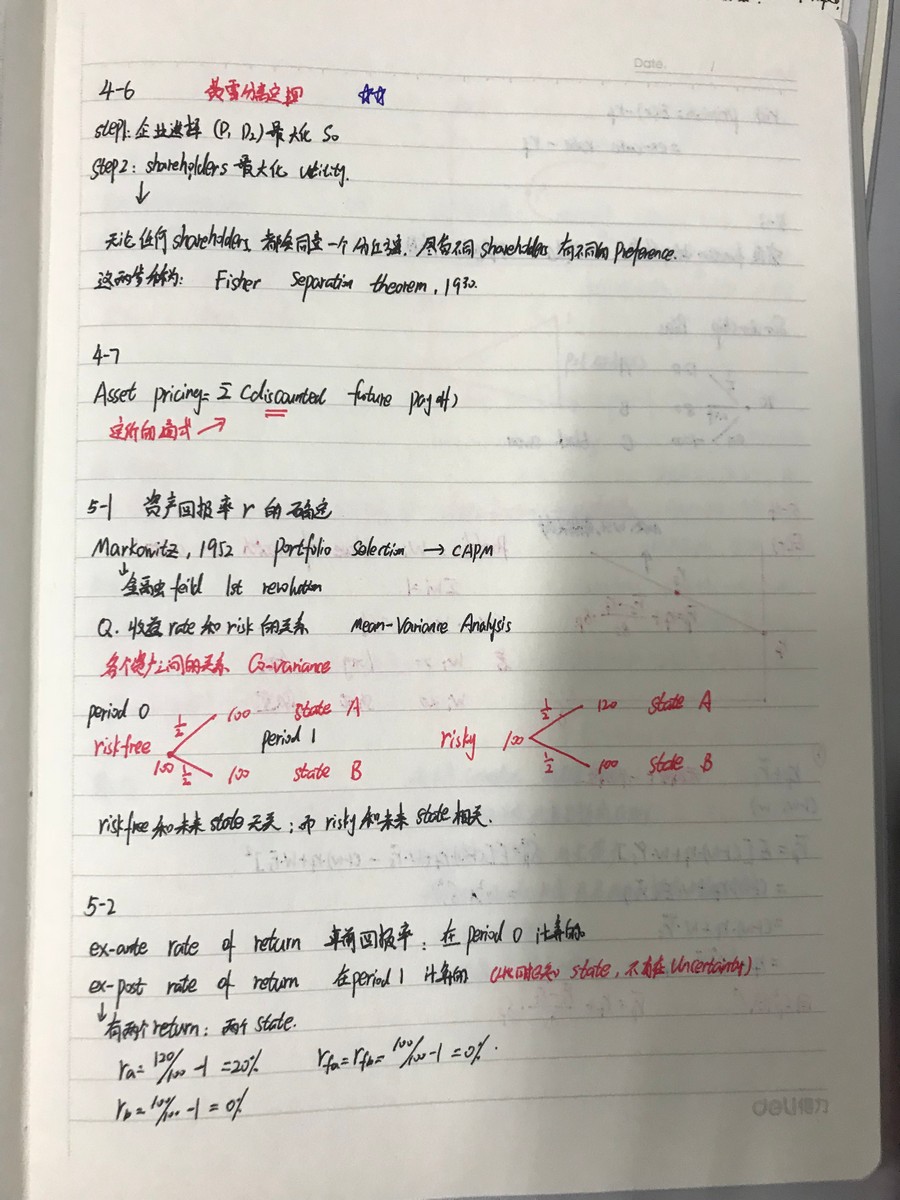 Date. /
4-6 费雪分离定理 ☆☆
step1: 企业选择 (D1 D2) 最大化 S0
Step2: shareholders 最大化 utility.
↓
无论任何 shareholders, 都会同意一个分红方案. 尽管不同 shareholders 有不同的 preference.
这两步称为: Fisher Separation theorem, 1930.
4-7
Asset pricing = Σ (discounted future payoff)
定价的通式 ↗
5-1 资产回报率 r 的确定
Markowitz, 1952 Portfolio Selection → CAPM
↓ 金融 feild 1st revolution
Q. 收益 rate 和 risk 的关系 Mean-Variance Analysis
各个资产之间的关系 Co-variance
period 0 1/2 100 state A 1/2 120 state A
riskfree period 1 risky 100
100 1/2 100 state B 1/2 100 state B
riskfree 和未来 state 无关; 而 risky 和未来 state 相关.
5-2
ex-ante rate of return 事前回报率: 在 period 0 计算的.
ex-post rate of return 在 period 1 计算的 (此时已知 state, 不存在 Uncertainty)
↓ 有两个 return: 两个 state.
ra = 120/100 - 1 = 20% rfa = rfb = 100/100 - 1 = 0%.
rb = 100/100 - 1 = 0%
deli得力